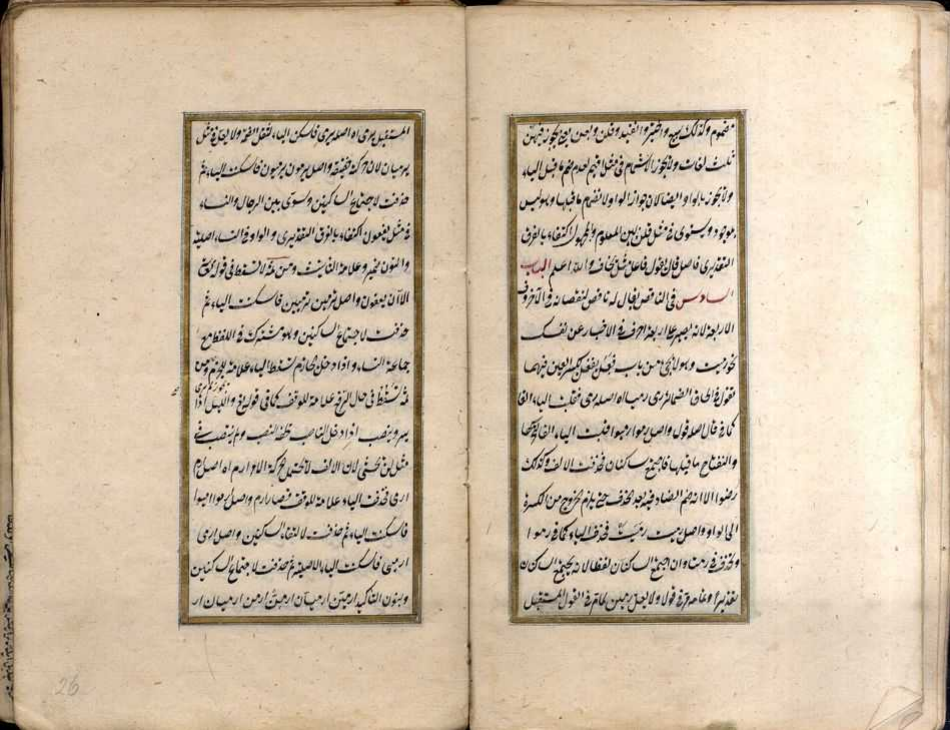 مفهوم وكذلك بيع واختير وانقيد وقلن وبعن يعنى يجوز فيهن
ثلث لغات ولا يجوز الاشمام فى مثل اقيم لعدم ضم ما قبل الياء
ولا يجوز بالواو ايضا لان جواز الواو لانضمام ما قبلها وهو ليس
بموجود ويستوى فى مثل قلن بين المعلوم والمجهول اكتفاء بالفرق
التقديرى فاصل يقال يقول فاعل مثل يخاف والله اعلم الباب
السادس فى الناقص يقال له ناقص لنقصانه فى الآخر وذو
الاربعة لانه يصير على اربعة احرف فى الاخبار عن نفسك
نحو رميت وهو لا يجئ من باب فعل يفعل بكسر العين فيهما
تقول فى الحاق الضمائر رمى رميا اه اصله رمى فقلبت الياء الفا
كما فى قال اصله قول واصل رموا رميوا فقلبت الياء الفا لتحركها
وانفتاح ما قبلها فاجتمع ساكنان فحذفت الالف وكذلك
رضوا الا انه ضم الضاد فيه بعد الحذف حتى لا يلزم الخروج من الكسرة
الى الواو واصل رمت رميت فحذفت الياء كما فى رموا
وتحذف فى رمتا وان لم يجتمع الساكنان لفظا لانه يجتمع الساكنان
تقديرا وتمامه مر فى قول ولا يعل رمين لما مر فى القول المستقبل
المستقبل يرمى اه اصله يرمى فاسكن الياء لثقل الضمة ولا يعل فى مثل
يرميان لان حركته خفيفة واصل يرمون يرميون فاسكنت الياء ثم
حذفت لاجتماع الساكنين وسوى بين الرجال والنساء
فى مثل يعفون اكتفاء بالفرق التقديرى والواو فى النساء اصلية
والنون ضمير وعلامة التانيث ومن ثمة لا تسقط فى قوله تعالى
الا ان يعفون واصل ترمين ترميين فاسكنت الياء ثم
حذفت لاجتماع الساكنين وهو مشترك فى اللفظ مع
جماعة النساء واذا دخل الجازم تسقط الياء علامة للجزم ومن
ثمة تسقط فى حال الرفع علامة للوقف كما فى قوله تع والليل اذا
يسر وينصب اذا دخل الناصب لخفة النصب ولم ينصب فى
مثل لن يخشى لان الالف لا تحتمل الحركة الامر ارم اه اصل ارم
ارمى فحذفت الياء علامة للوقف فصار ارم واصل ارموا ارميوا
فاسكنت الياء ثم حذفت لالتقاء الساكنين واصل ارمى
ارميى فاسكنت الياء الاصلية ثم حذفت لاجتماع الساكنين
وبنون التاكيد ارمين ارميان ارمن ارمن ارميان ار
26